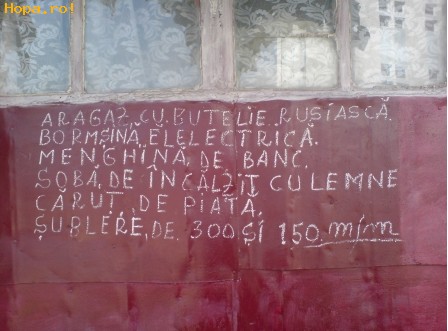 Hopa.ro!
ARAGAZ, CU. BUTELIE. RUSIASCĂ.
BORMȘINĂ, ELELECTRICĂ.
MENGHINĂ, DE BANC.
SOBĂ, DE ÎNCĂLZIT CU LEMNE
CĂRUȚ, DE PIAȚĂ.
ȘUBLERE, DE. 300, ȘI 150. m/m